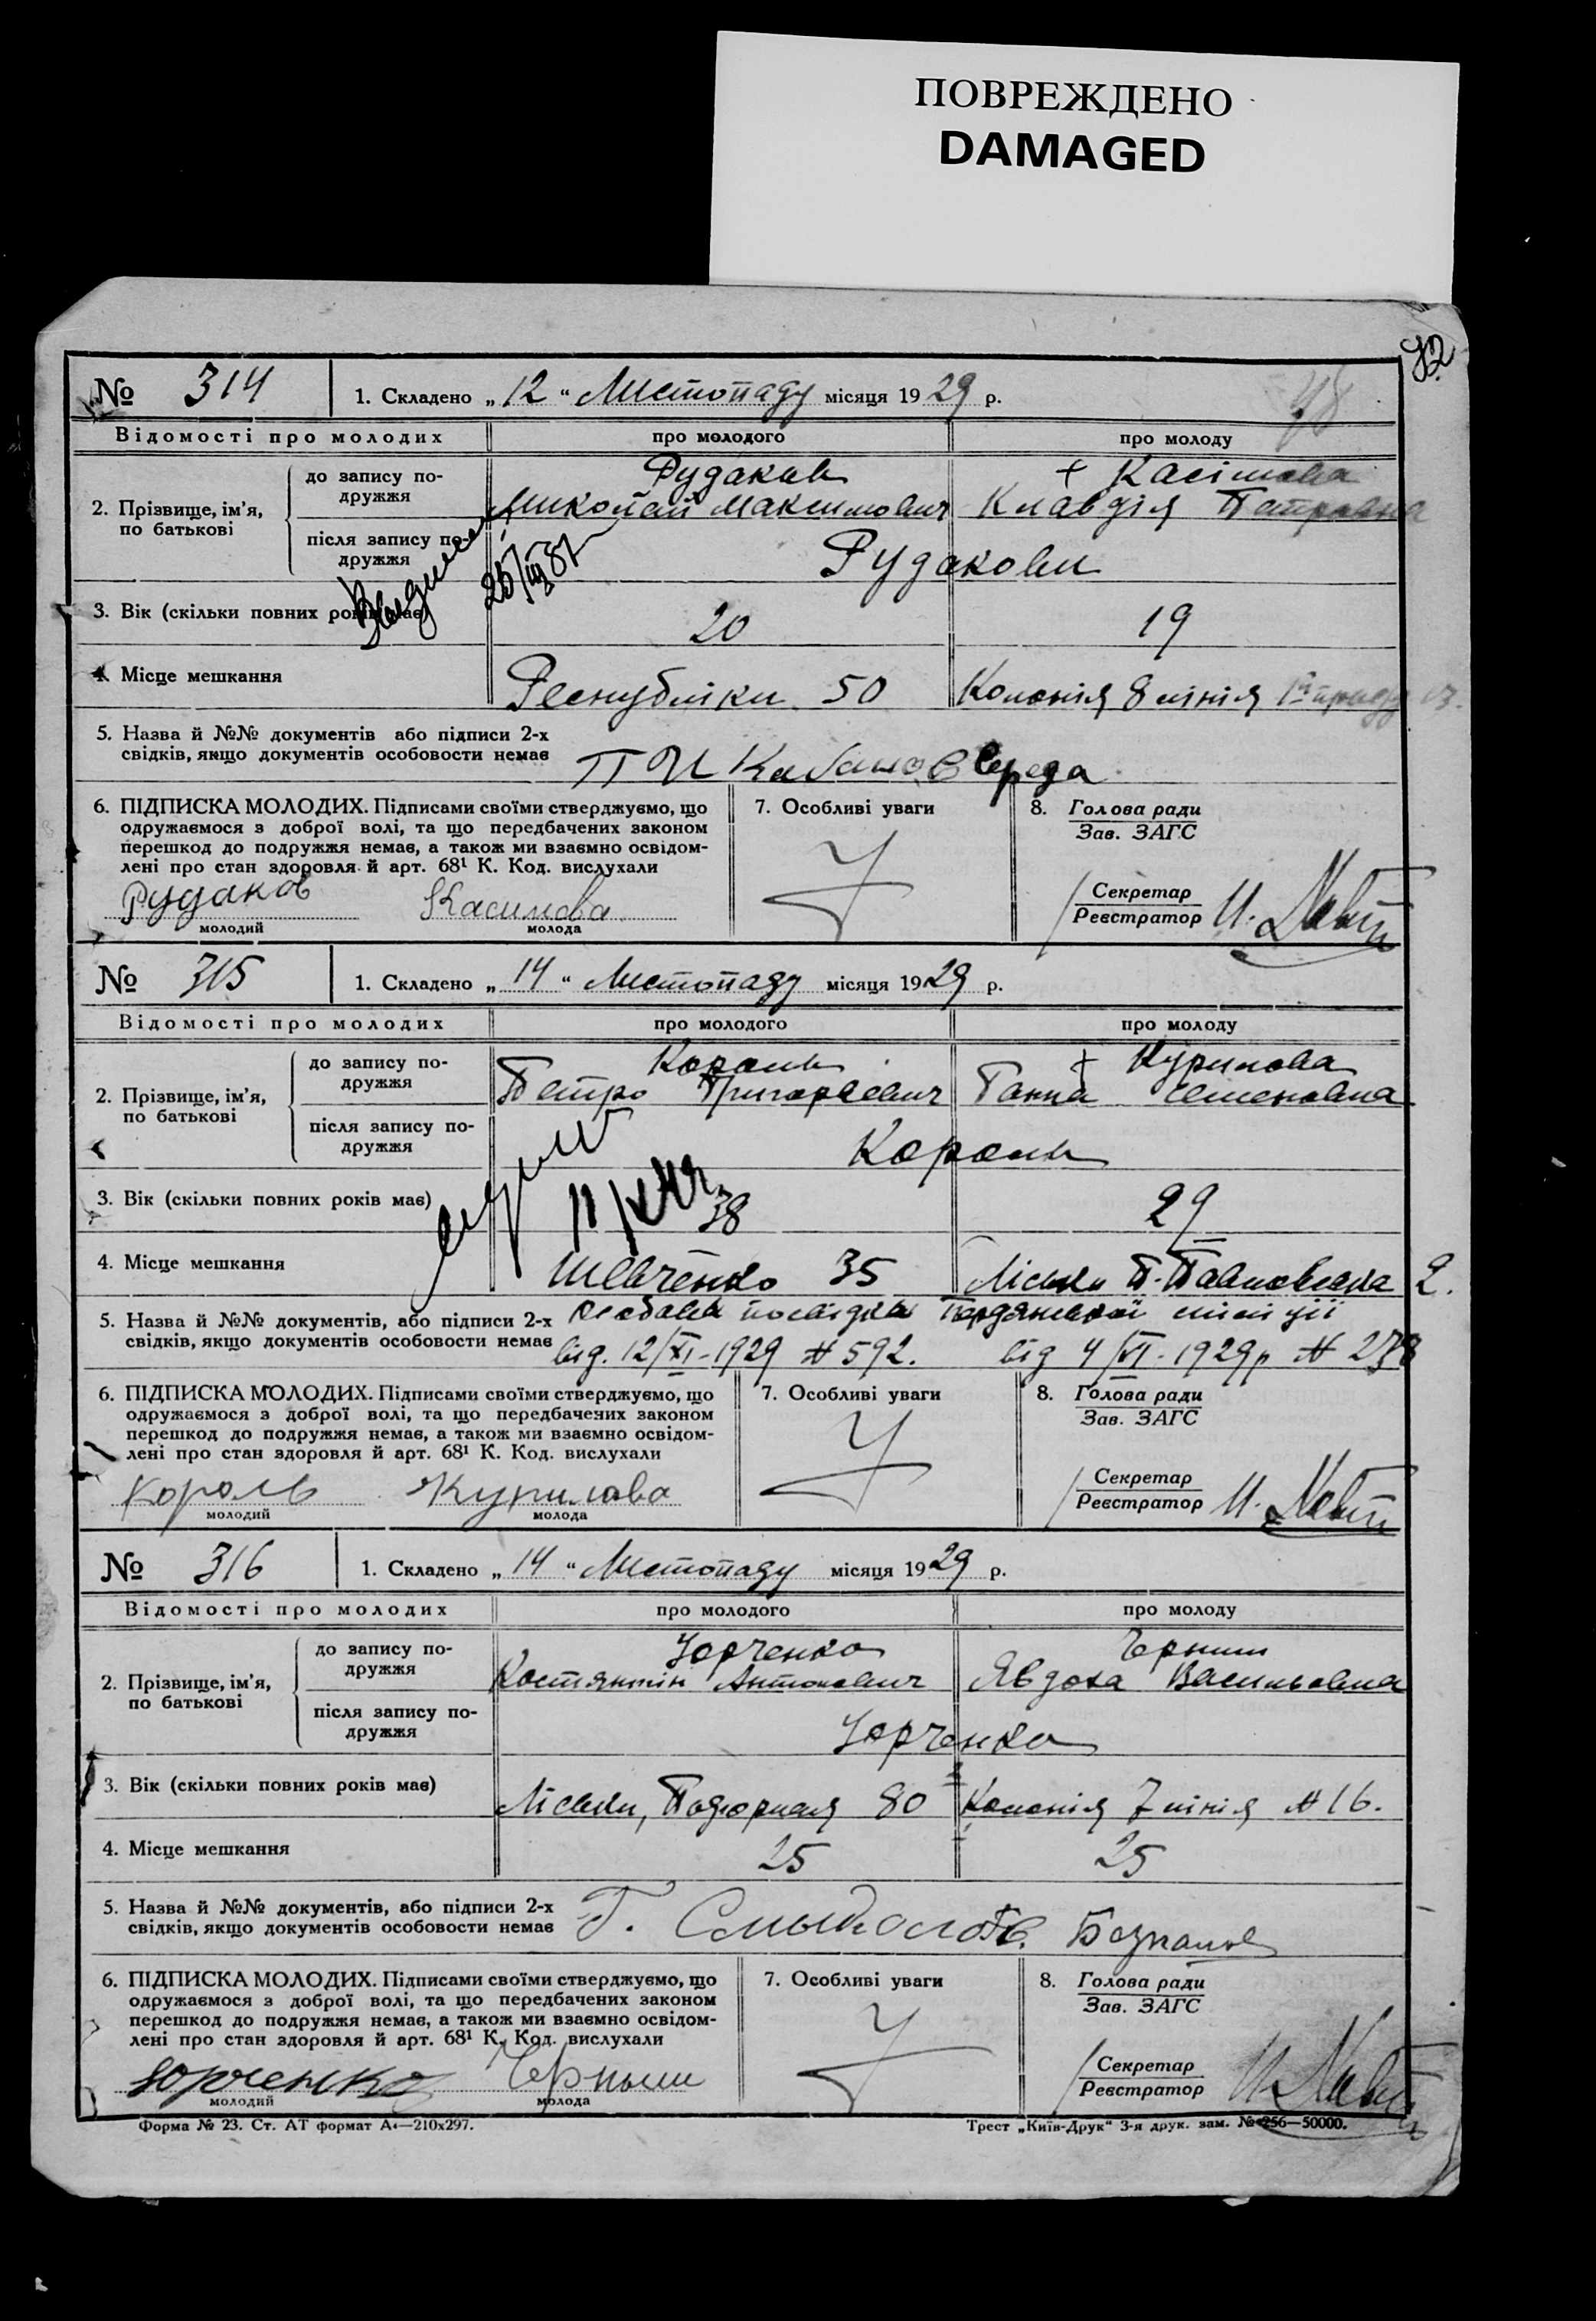 ПОВРЕЖДЕНО
DAMAGED
№ 314 1. Складено „ 12 “ Листопаду місяця 19 29 р.
Відомості про молодих про молодого про молоду
2. Прізвище, ім’я, по батькові
до запису по-
дружжя
Рудаков + Касімова
Миколай Максимович Клавдія Петровна
після запису по-
дружжя
Рудакови
25/III 87
3. Вік (скільки повних років має) 20 19
4. Місце мешкання Республіки 50 Колонія 8 лінія
5. Назва й №№ документів або підписи 2-х
свідків, якщо документів особовости немає Середа
6. ПІДПИСКА МОЛОДИХ. Підписами своїми стверджуємо, що
одружаємося з доброї волі, та що передбачених законом
перешкод до подружжя немає, а також ми взаємно освідом-
лені про стан здоровля й арт. 68¹ К. Код. вислухали
Рудаков Касимова
молодий молода
7. Особливі уваги
8. Голова ради
Зав. ЗАГС
Секретар
Реєстратор
№ 315 1. Складено „ 14 “ Листопаду місяця 1929 р.
Відомості про молодих про молодого про молоду
2. Прізвище, ім’я, по батькові
до запису по-
дружжя
Король + Курилова
Петро Григорієвич Ганна Семеновна
після запису по-
дружжя
Король
3. Вік (скільки повних років має) 38 29
4. Місце мешкання Шевченко 35 Ліски П-Павловська 2.
5. Назва й №№ документів, або підписи 2-х
свідків, якщо документів особовости немає
Особова посвідка Бердянської міліції
від. 12/XI-1929 № 592. від 4/VI-1929р № 278
6. ПІДПИСКА МОЛОДИХ. Підписами своїми стверджуємо, що
одружаємося з доброї волі, та що передбачених законом
перешкод до подружжя немає, а також ми взаємно освідом-
лені про стан здоровля й арт. 68¹ К. Код. вислухали
Король Курилова
молодий молода
7. Особливі уваги
8. Голова ради
Зав. ЗАГС
Секретар
Реєстратор
№ 316 1. Складено „ 14 “ Листопаду місяця 1929 р.
Відомості про молодих про молодого про молоду
2. Прізвище, ім’я, по батькові
до запису по-
дружжя
Юрченко Черниш
Костянтін Антонович Явдоха Васильовна
після запису по-
дружжя
Юрченко
3. Вік (скільки повних років має) Ліски, Подгорная 80 Колонія 7 лінія № 16.
4. Місце мешкання 25 25
5. Назва й №№ документів, або підписи 2-х
свідків, якщо документів особовости немає
6. ПІДПИСКА МОЛОДИХ. Підписами своїми стверджуємо, що
одружаємося з доброї волі, та що передбачених законом
перешкод до подружжя немає, а також ми взаємно освідом-
лені про стан здоровля й арт. 68¹ К. Код. вислухали
Юрченко Черныш
молодий молода
7. Особливі уваги
8. Голова ради
Зав. ЗАГС
Секретар
Реєстратор
Форма № 23. Ст. АТ формат А4—210х297. Трест „Київ-Друк“ 3-я друк. зам. № 256—50000.